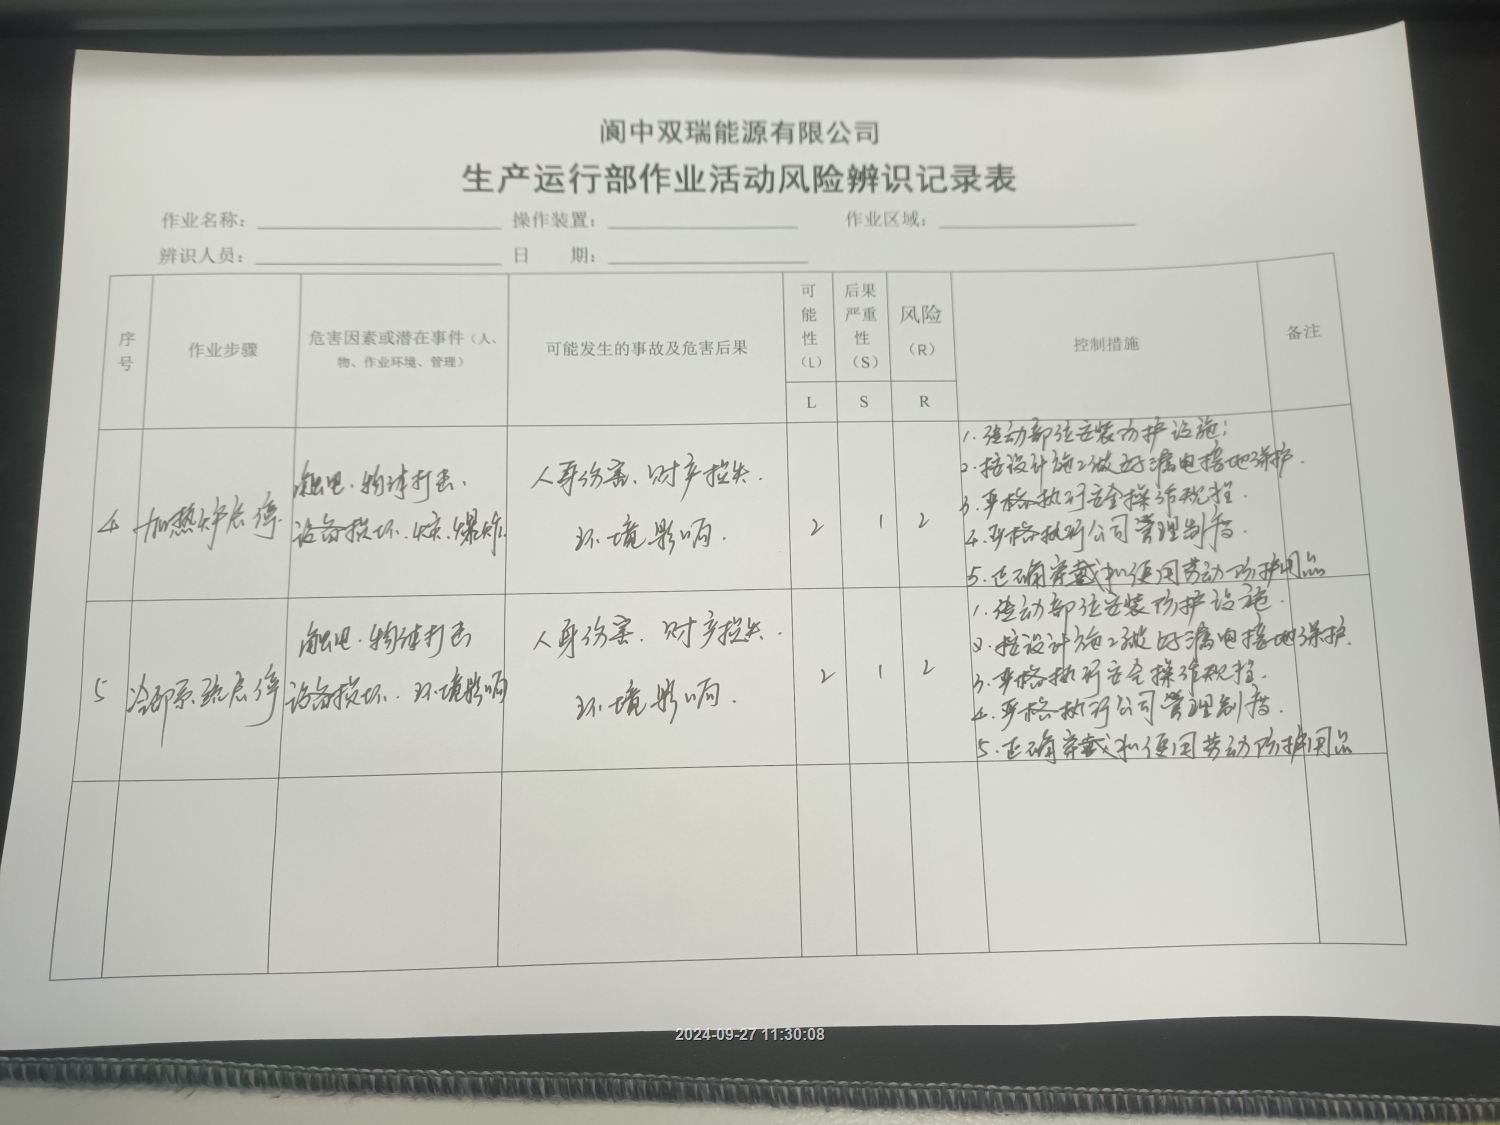 阆中双瑞能源有限公司
生产运行部作业活动风险辨识记录表
作业名称： 操作装置： 作业区域：
辨识人员： 日 期：
序号 作业步骤 危害因素或潜在事件（人、物、作业环境、管理） 可能发生的事故及危害后果 可能性（L） 后果严重性（S） 风险（R） 控制措施 备注
L S R
4 加热炉启停 触电.物体打击、 人身伤害、财产损失. 2 1 2 1.转动部位安装防护设施；
设备损坏.火灾.爆炸. 环境影响. 2.按设计施工做好漏电接地保护.
3.严格执行安全操作规程.
4.严格执行公司管理制度.
5.正确穿戴和使用劳动防护用品
5 冷却系统启停 触电.物体打击 人身伤害、财产损失. 2 1 2 1.转动部位安装防护设施.
设备损坏.环境影响 环境影响. 2.按设计施工做好漏电接地保护.
3.严格执行安全操作规程.
4.严格执行公司管理制度.
5.正确穿戴和使用劳动防护用品
2024-09-27 11:30:08